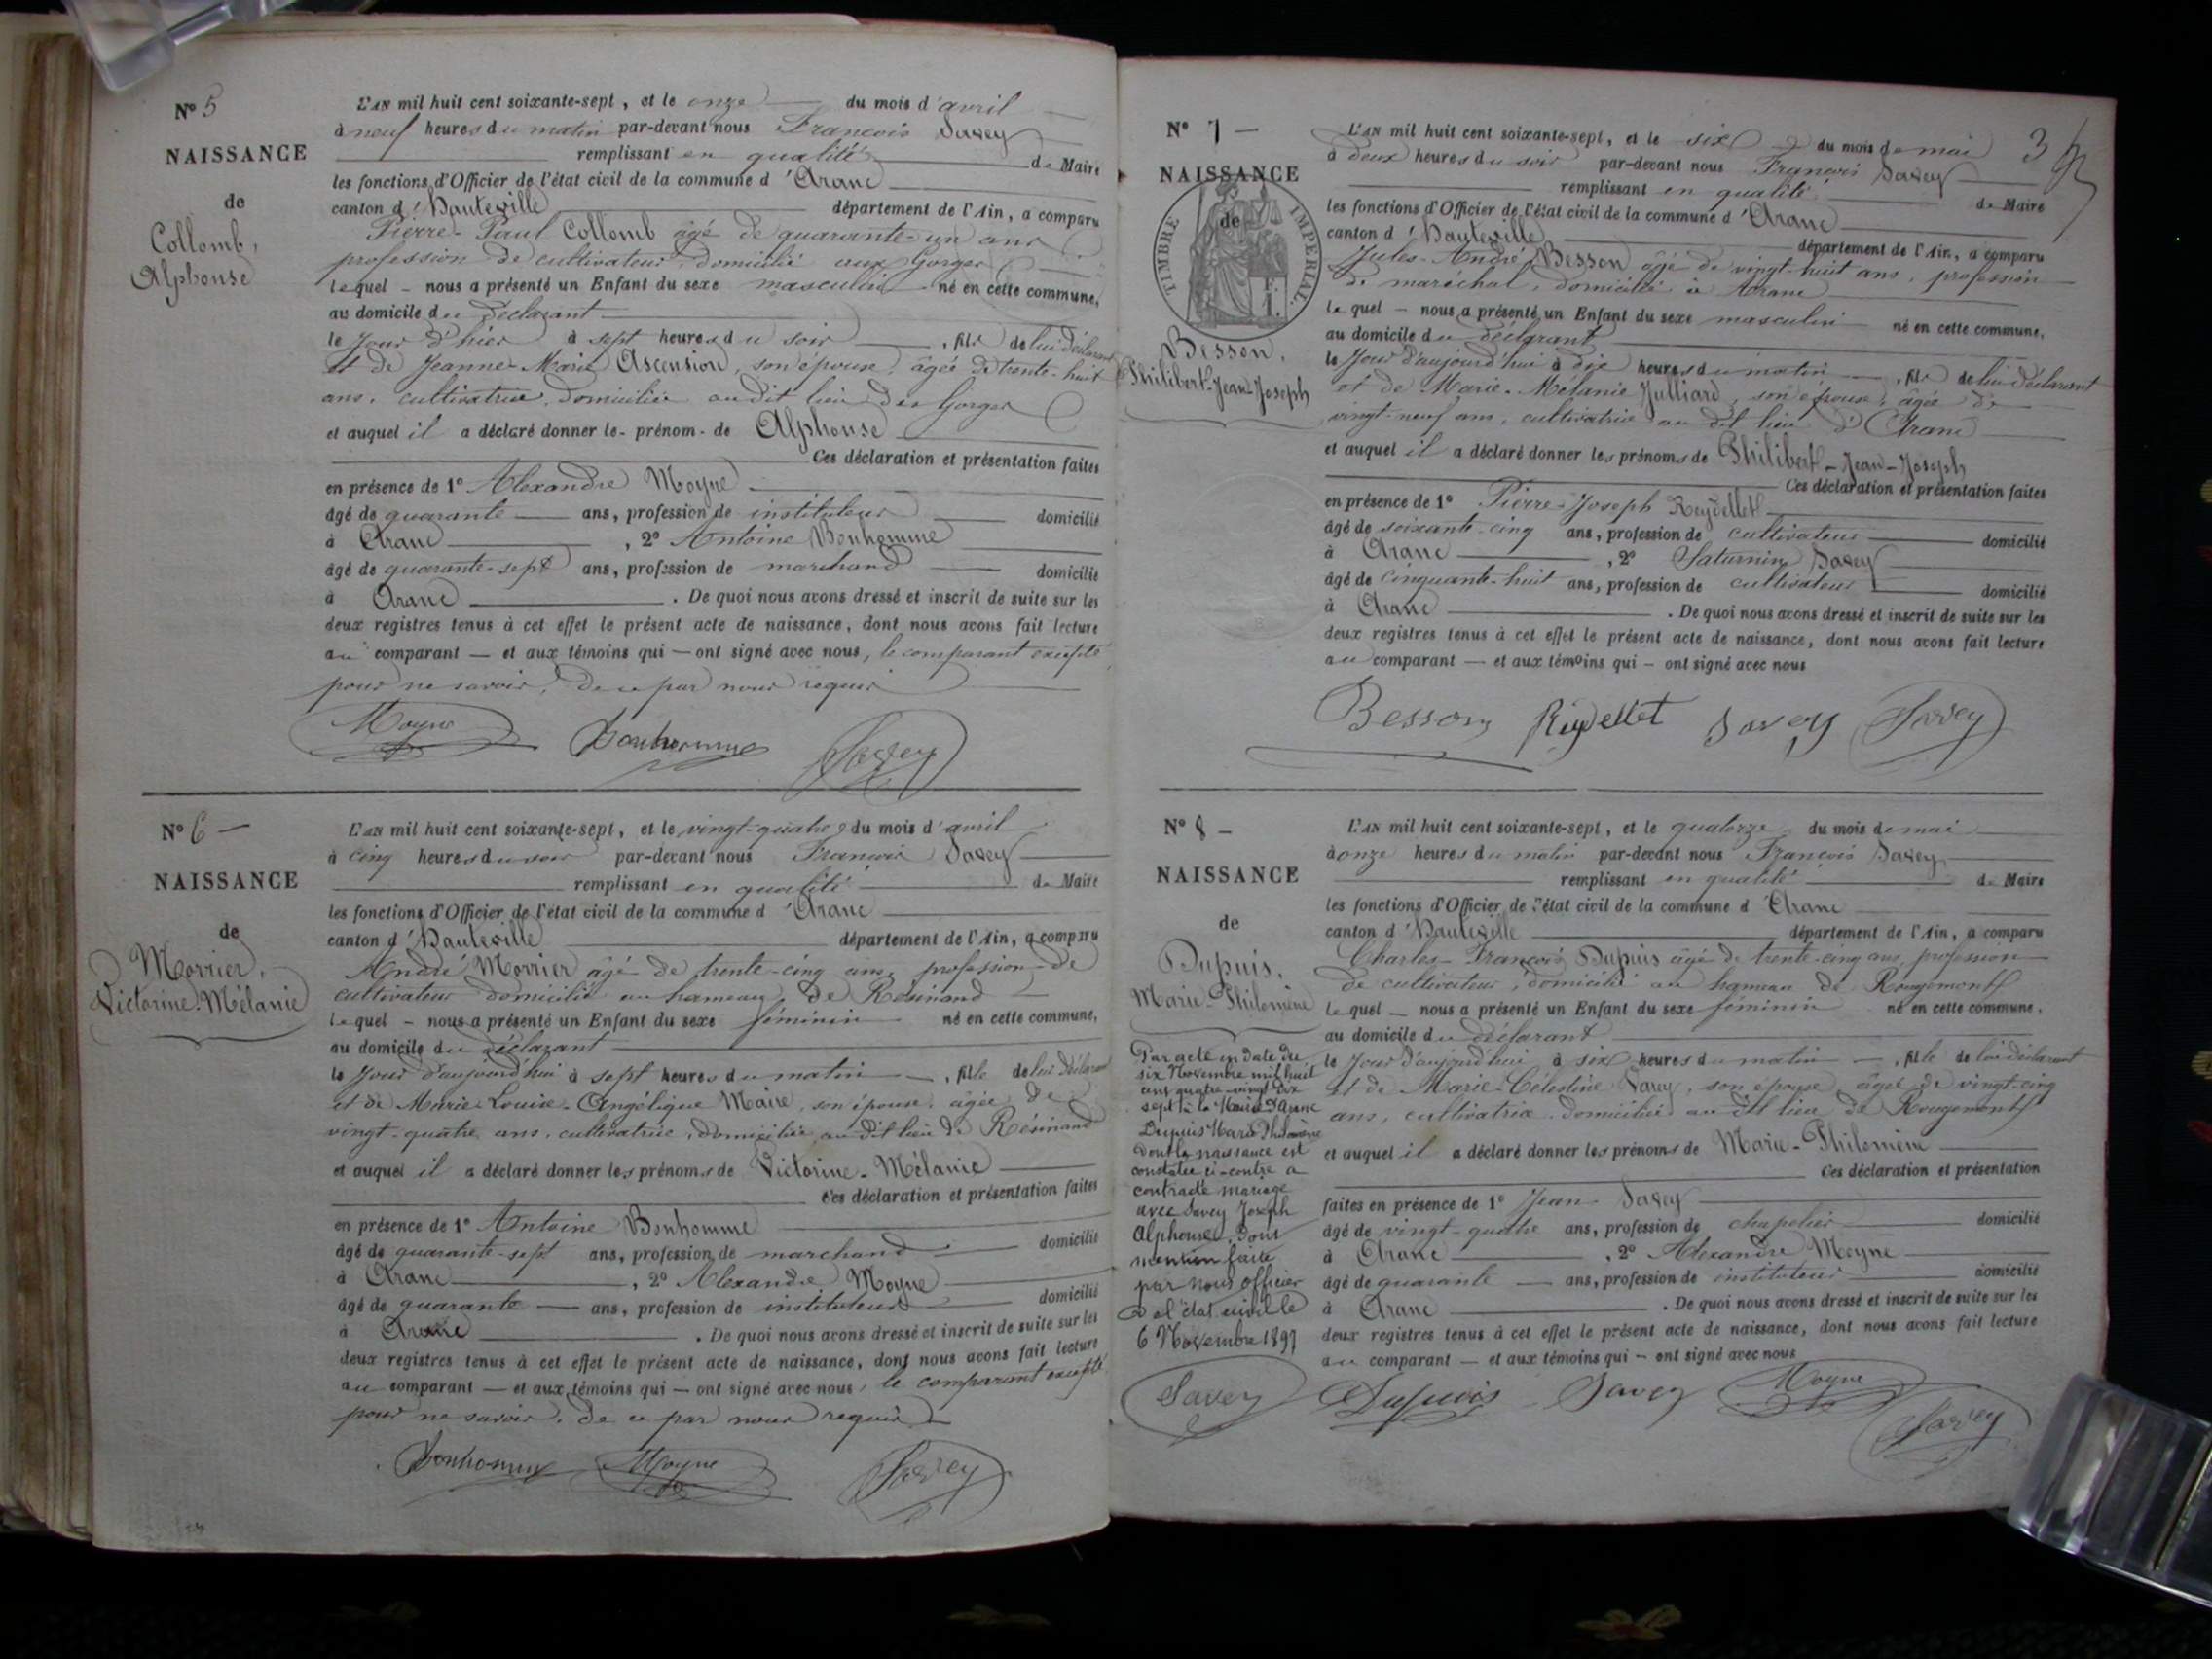 N° 5
NAISSANCE
de
Collomb,
Alphonse
L'AN mil huit cent soixante-sept, et le onze du mois d'avril
à neuf heures du matin par-devant nous François Savey
remplissant en qualité de Maire
les fonctions d'Officier de l'état civil de la commune d'Aranc
canton d'Hauteville département de l'Ain, a comparu
Pierre-Paul Collomb âgé de quarante-un ans
profession de cultivateur, domicilié aux Gorges
lequel nous a présenté un Enfant du sexe masculin né en cette commune,
au domicile du déclarant
le jour d'hier à sept heures du soir, fils de lui déclarant
et de Jeanne-Marie Ascension, son épouse, âgée de trente-huit
ans, cultivatrice, domiciliée audit lieu des Gorges
et auquel il a déclaré donner le prénom de Alphonse
Ces déclaration et présentation faites
en présence de 1° Alexandre Moyne
âgé de quarante ans, profession de instituteur domicilié
à Aranc, 2° Antoine Bonhomme
âgé de quarante-sept ans, profession de marchand domicilié
à Aranc. De quoi nous avons dressé et inscrit de suite sur les
deux registres tenus à cet effet le présent acte de naissance, dont nous avons fait lecture
au comparant et aux témoins qui ont signé avec nous, le comparant excepté
pour ne savoir, de ce par nous requis
Moyne Bonhomme Savey
N° 6
NAISSANCE
de
Morrier,
Victorine-Mélanie
L'AN mil huit cent soixante-sept, et le vingt-quatre du mois d'avril
à cinq heures du soir par-devant nous François Savey
remplissant en qualité de Maire
les fonctions d'Officier de l'état civil de la commune d'Aranc
canton d'Hauteville département de l'Ain, a comparu
André Morrier âgé de trente-cinq ans, profession de
cultivateur domicilié au hameau de Résinand
lequel nous a présenté un Enfant du sexe féminin né en cette commune,
au domicile du déclarant
le jour d'aujourd'hui à sept heures du matin, fille de lui déclarant
et de Marie-Louise-Angélique Maire, son épouse, âgée de
vingt-quatre ans, cultivatrice, domiciliée au dit lieu de Résinand
et auquel il a déclaré donner les prénoms de Victorine-Mélanie
Ces déclaration et présentation faites
en présence de 1° Antoine Bonhomme
âgé de quarante-sept ans, profession de marchand domicilié
à Aranc, 2° Alexandre Moyne
âgé de quarante ans, profession de instituteur domicilié
à Aranc. De quoi nous avons dressé et inscrit de suite sur les
deux registres tenus à cet effet le présent acte de naissance, dont nous avons fait lecture
au comparant et aux témoins qui ont signé avec nous, le comparant excepté
pour ne savoir, de ce par nous requis
Bonhomme Moyne Savey
3
N° 7
NAISSANCE
de
TIMBRE IMPERIAL
Besson,
Philibert-Jean-Joseph
L'AN mil huit cent soixante-sept, et le six du mois de mai
à deux heures du soir par-devant nous François Savey
remplissant en qualité de Maire
les fonctions d'Officier de l'état civil de la commune d'Aranc
canton d'Hauteville département de l'Ain, a comparu
Jules-André Besson âgé de vingt-huit ans, profession
de maréchal, domicilié à Aranc
lequel nous a présenté un Enfant du sexe masculin né en cette commune,
au domicile du déclarant
le jour d'aujourd'hui à dix heures du matin, fils de lui déclarant
et de Marie-Mélanie Julliard, son épouse, âgée de
vingt-neuf ans, cultivatrice au dit lieu d'Aranc
et auquel il a déclaré donner les prénoms de Philibert-Jean-Joseph
Ces déclaration et présentation faites
en présence de 1° Pierre-Joseph Reydellet
âgé de soixante-cinq ans, profession de cultivateur domicilié
à Aranc, 2° Saturnin Savey
âgé de cinquante-huit ans, profession de cultivateur domicilié
à Aranc. De quoi nous avons dressé et inscrit de suite sur les
deux registres tenus à cet effet le présent acte de naissance, dont nous avons fait lecture
au comparant et aux témoins qui ont signé avec nous
Besson Reydellet Savey Savey
N° 8
NAISSANCE
de
Dupuis,
Marie-Philomène
Par acte en date du
six Novembre mil huit
cent quatre vingt dix
sept à la Mairie d'Aranc
Dupuis Marie Philomène
dont la naissance est
constatée ci-contre a
contracté mariage
avec Savey Joseph
Alphonse, Dont
mention faite
par nous officier
de l'état civil le
6 Novembre 1897
Savey
L'AN mil huit cent soixante-sept, et le quatorze du mois de mai
à onze heures du matin par-devant nous François Savey
remplissant en qualité de Maire
les fonctions d'Officier de l'état civil de la commune d'Aranc
canton d'Hauteville département de l'Ain, a comparu
Charles-François Dupuis âgé de trente-cinq ans, profession
de cultivateur, domicilié au hameau de Rougemont
lequel nous a présenté un Enfant du sexe féminin né en cette commune,
au domicile du déclarant
le jour d'aujourd'hui à six heures du matin, fille de lui déclarant
et de Marie-Célestine Savey, son épouse, âgée de vingt-cinq
ans, cultivatrice, domiciliée au dit lieu de Rougemont
et auquel il a déclaré donner les prénoms de Marie-Philomène
Ces déclaration et présentation
faites en présence de 1° Jean Savey
âgé de vingt-quatre ans, profession de chapelier domicilié
à Aranc, 2° Alexandre Moyne
âgé de quarante ans, profession de instituteur domicilié
à Aranc. De quoi nous avons dressé et inscrit de suite sur les
deux registres tenus à cet effet le présent acte de naissance, dont nous avons fait lecture
au comparant et aux témoins qui ont signé avec nous
Dupuis Savey Moyne Savey